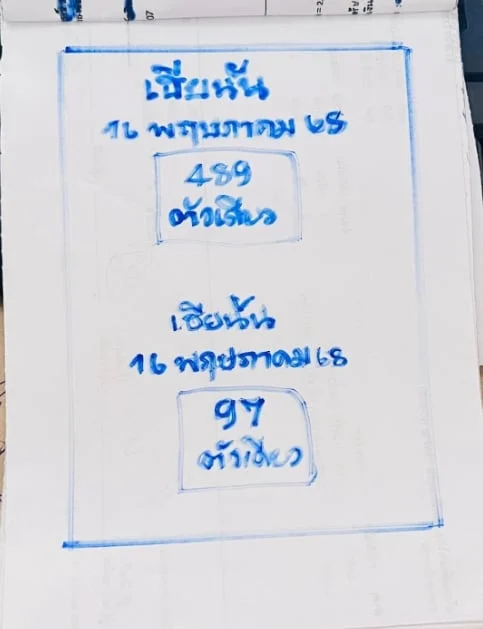 07
เซียนัน
16 พฤษภาคม 68
489
ตัวเดียว
เซียนัน
16 พฤษภาคม 68
97
ตัวเดียว